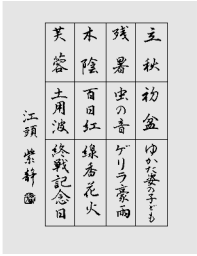 立秋 初盆 ゆかた姿の子ども
残暑 虫の音 ゲリラ豪雨
木陰 百日紅 線香花火
芙蓉 土用波 終戦記念日
江頭 紫静